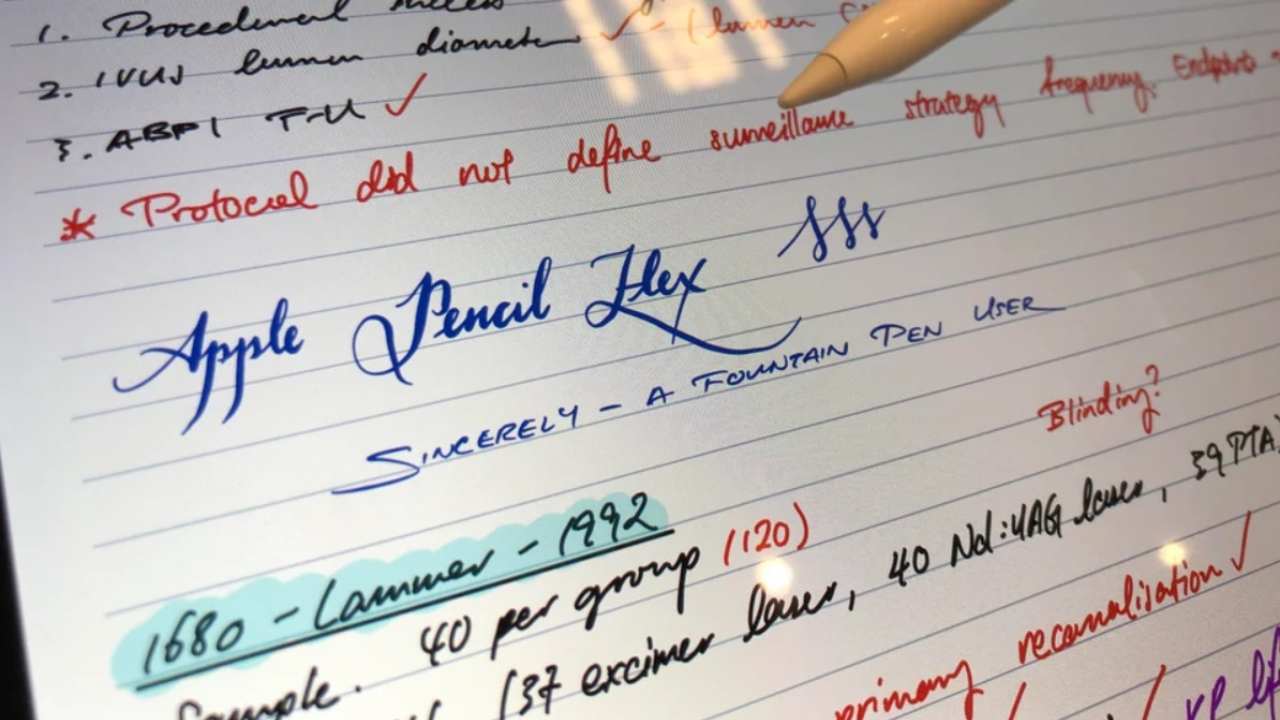 1. Procedural success
2. IVUS lumen diameter ✓ - (lumen
3. ABPI F-U ✓
* Protocol did not define surveillance strategy frequency. Endpoints
Apple Pencil Flex
SINCERELY - A FOUNTAIN PEN USER
Blinding?
1680 - Lammer - 1992
Sample. 40 per group (120)
(37 excimer laser, 40 Nd:YAG laser, 39 PTA)
primary recanalisation ✓